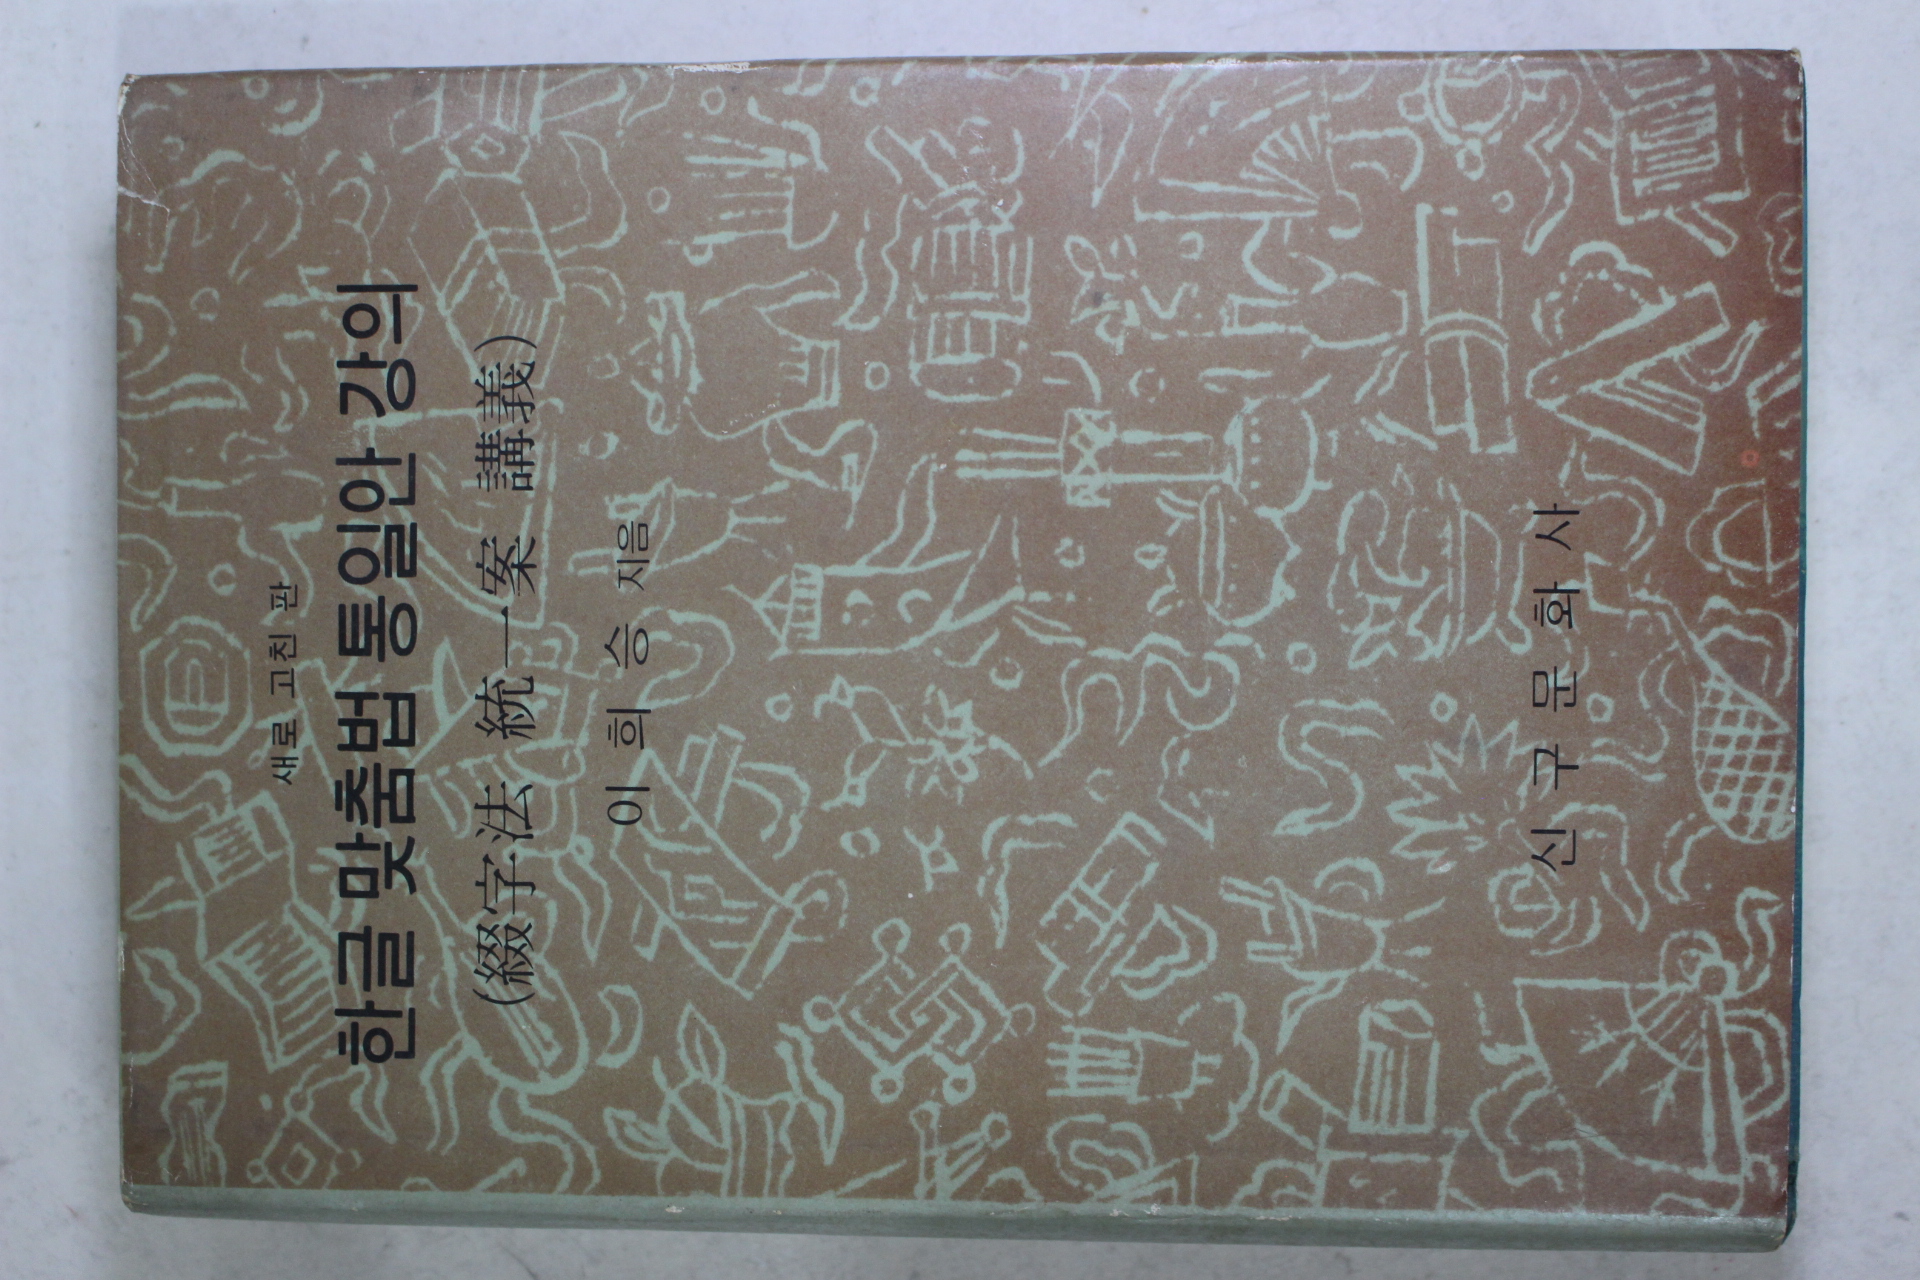 새로 고친 판
한글 맞춤법 통일안 강의
(綴字法 統一案 講義)
이 희 승 지음
신 구 문 화 사